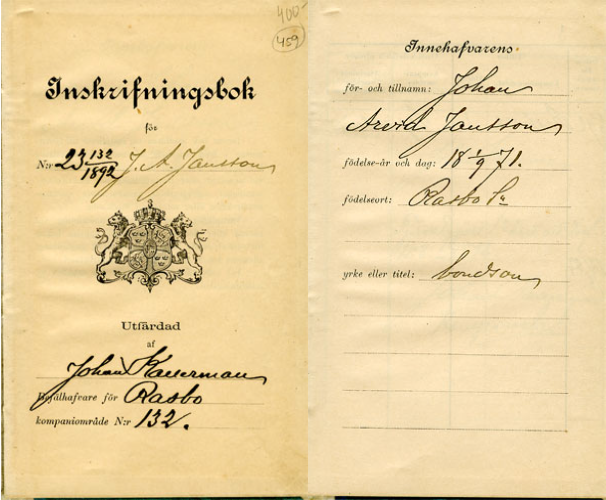 400-
459
Inskrifningsbok
för
N:r 23 132/1892 J. A. Jansson
Utfärdad
af
Johan
Befälhafvare för Rasbo
kompaniområde N:r 132.
Innehafvarens
för- och tillnamn: Johan
Arvid Jansson
födelse-år och dag: 18 1/9 71.
födelseort: Rasbo Sn
yrke eller titel: bondson